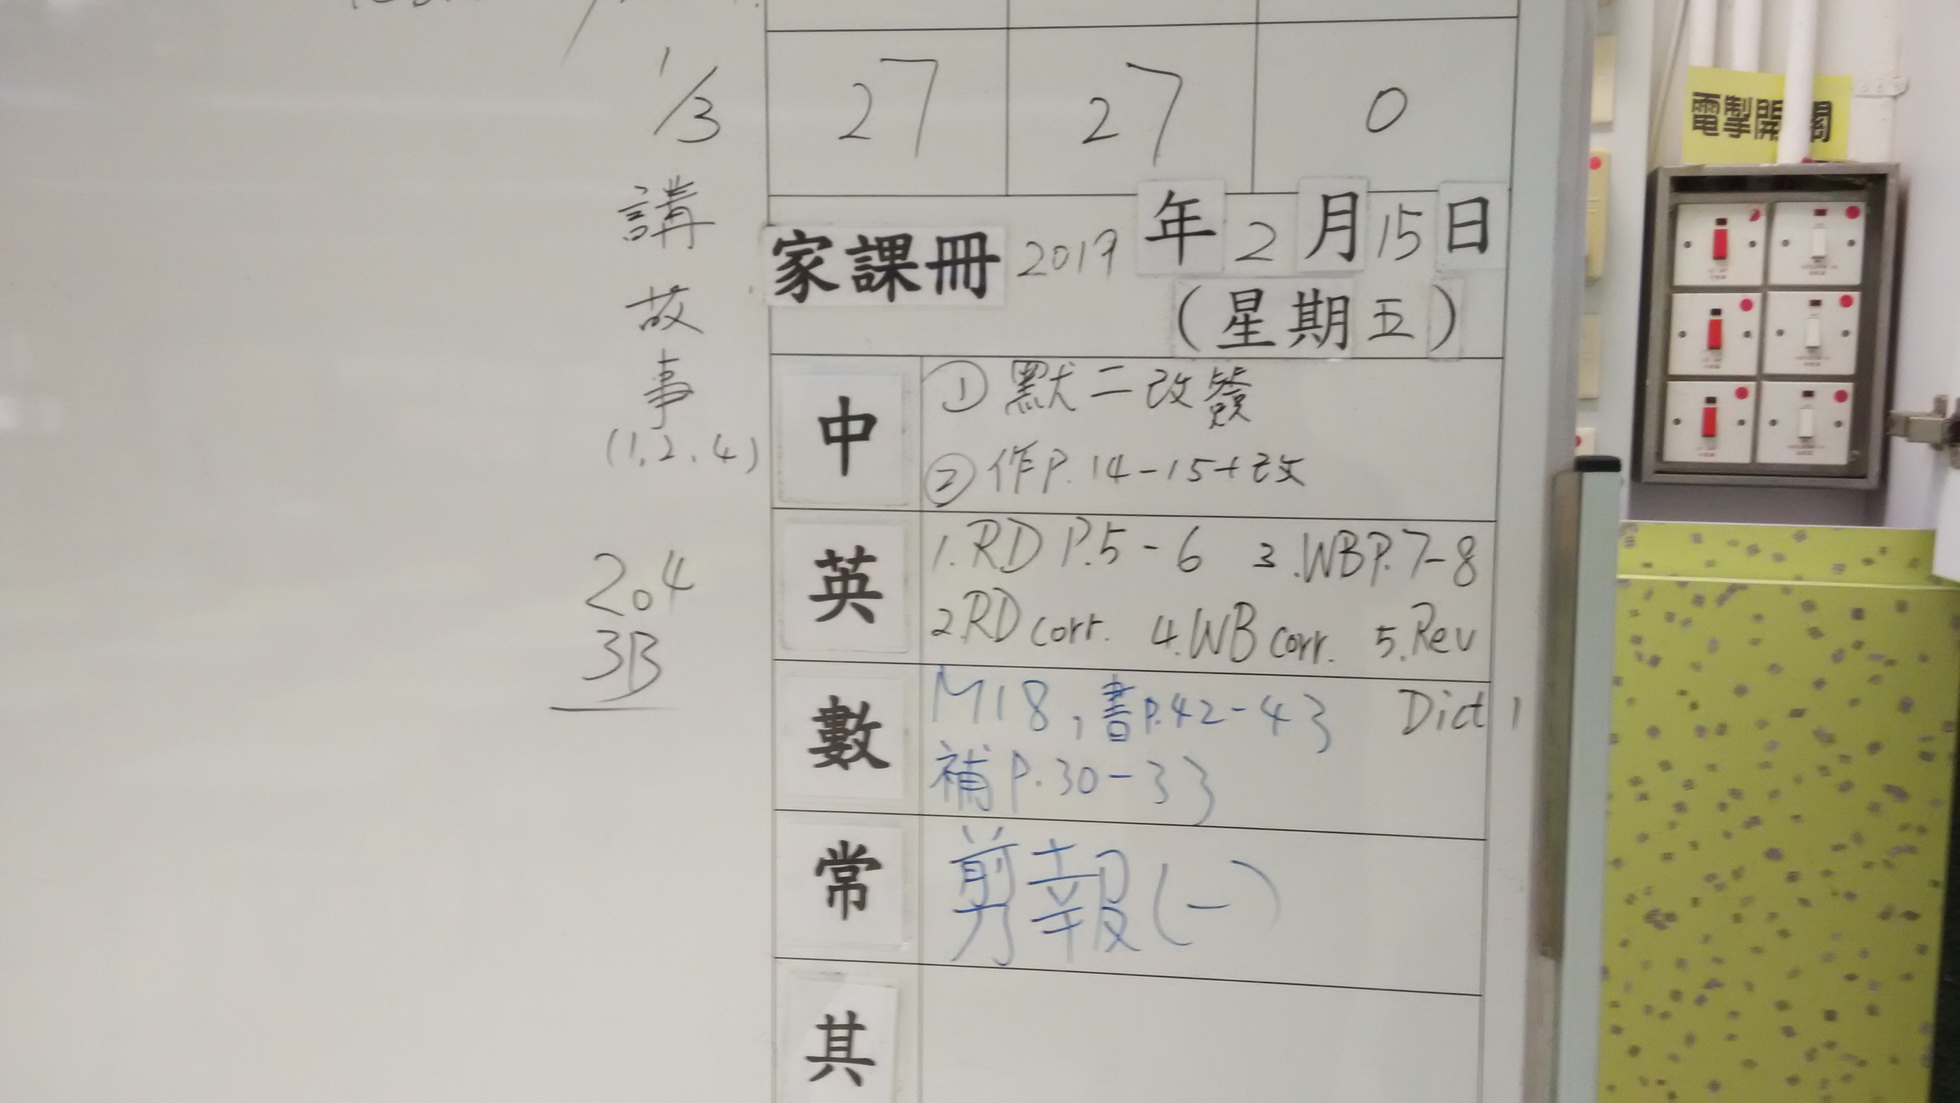 1/3
講
故
事
(1.2.4)
204
3B
27 27 0
家課冊 2019年2月15日
(星期五)
中
① 默二改簽
② 作P.14-15+改
英
1.RD P.5-6 3.WBP.7-8
2.RD corr. 4.WB corr. 5.Rev
數
M18,書P.42-43 Dict 1
補P.30-33
常
剪報(一)
其
電掣開關